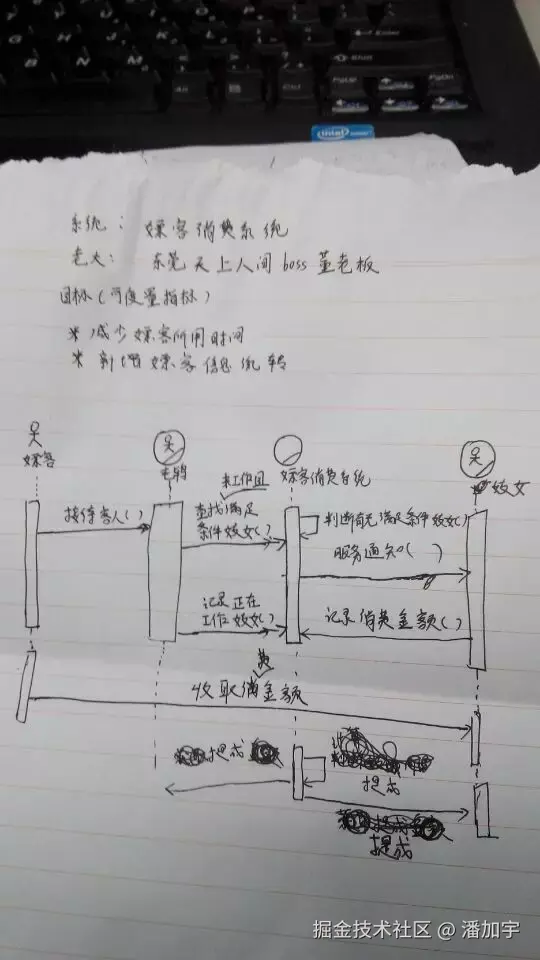 Enter
Shift
PgUp
PgDn
Alt
Ctrl
intel
系统：嫖客消费系统
老大：东莞天上人间boss董老板
目标（可度量指标）
* 减少嫖客所用时间
* 新增嫖客信息流转
嫖客
老鸨
嫖客消费系统
妓女
未工作的
接待客人()
查找满足
条件妓女()
判断有无满足条件妓女()
服务通知()
记录正在
工作妓女()
记录消费金额()
费
收取消金额
提成
计算
提成
提成
掘金技术社区 @ 潘加宇